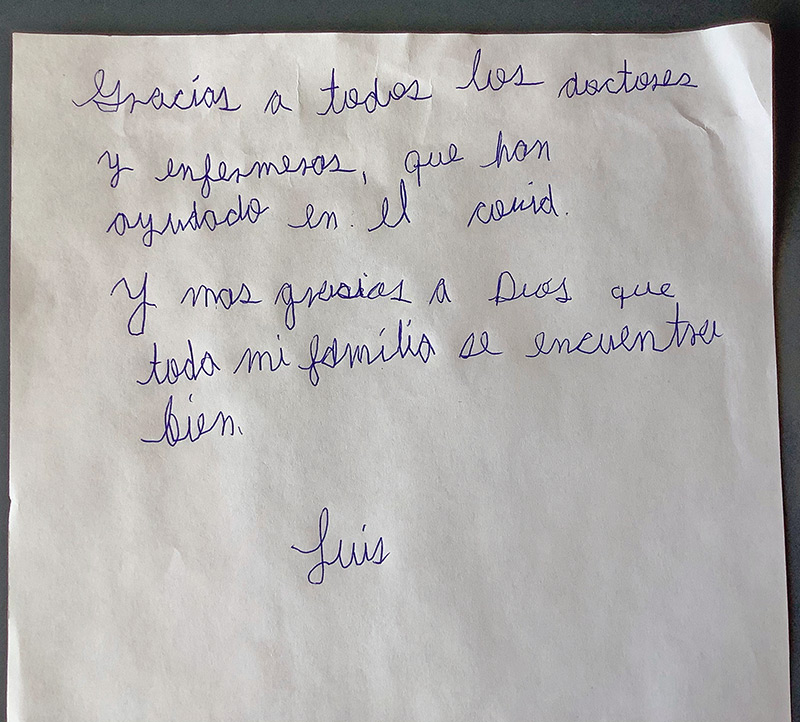 Gracias a todos los doctores
y enfermeras, que han
ayudado en el covid.
Y mas gracias a Dios que
toda mi família se encuentra
bien.
Luis